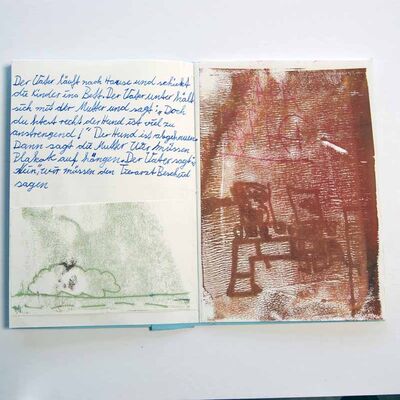 Der Vater läuft nach Hause und schickt
die Kinder ins Bett. Der Vater unter hält
sich mit der Mutter und sagt: „Doch
du hatest recht der Hund ist viel zu
anstrengend!" Der Hund ist abgehauen.
Dann sagt die Mutter Wir müssen
Plakate auf hängen. Der Vater sagt:
Nein, wir müssen den Tierarzt Bescheid
sagen